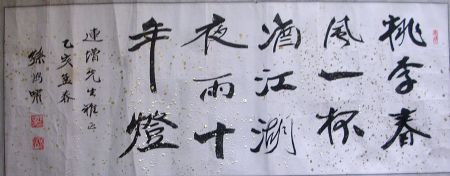 桃李春
风一杯
酒江湖
夜雨十
年燈
連增先生雅正
乙亥孟春